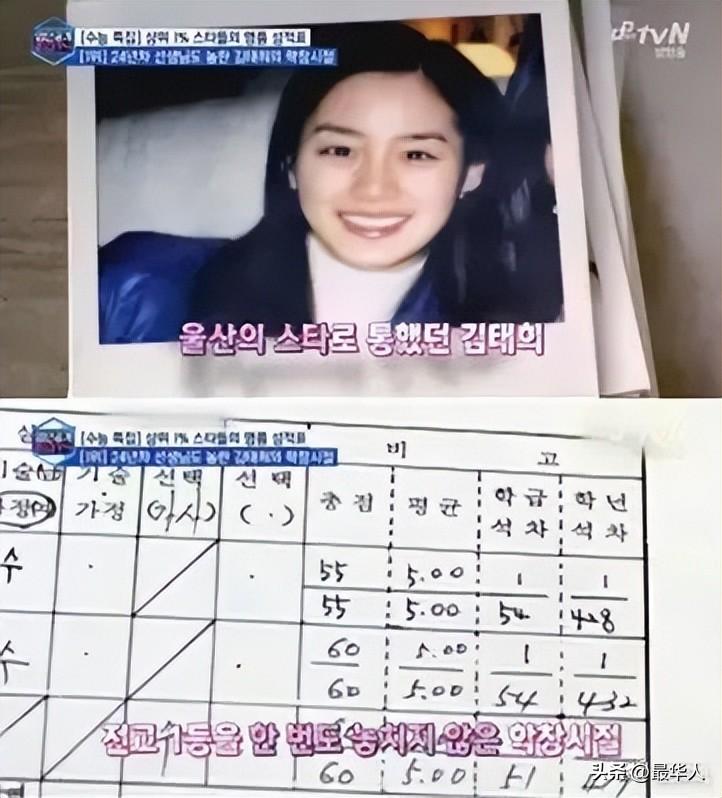 [수능 특집] 상위 1% 스타들의 명품 성적표
[1위] 24년차 선생님도 놀란 김태희의 학창시절
tvN
울산의 스타로 통했던 김태희
[수능 특집] 상위 1% 스타들의 명품 성적표
[1위] 24년차 선생님도 놀란 김태희의 학창시절
비 고
기술
가정
선택
(가사)
선택
( . )
총점
평균
학급
석차
학년
석차
수 55 5.00 1 1
55 5.00 54 428
수 60 5.00 1 1
60 5.00 54 432
전교 1등을 한 번도 놓치지 않은 학창시절
60 5.00 51
头条@最华人